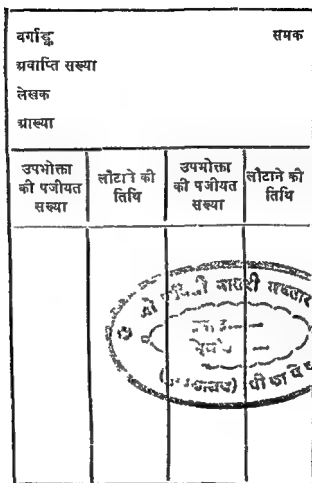 वर्गाङ्क समक
अवाप्ति सख्या
लेखक
आख्या
उपभोक्ता की पजीयत सख्या
लौटाने की तिथि
उपभोक्ता की पजीयत सख्या
लौटाने की तिथि